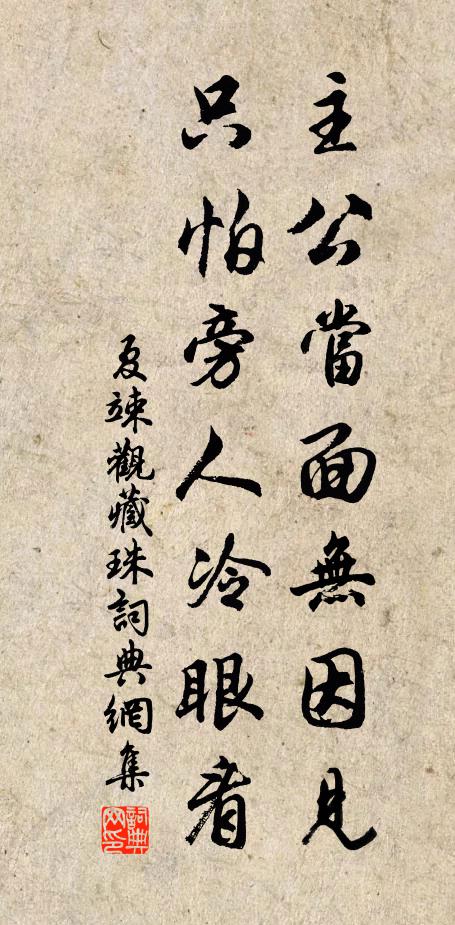 主公當面無因見
只怕旁人冷眼看
夏竦觀藏珠詞典網集
詞典网印